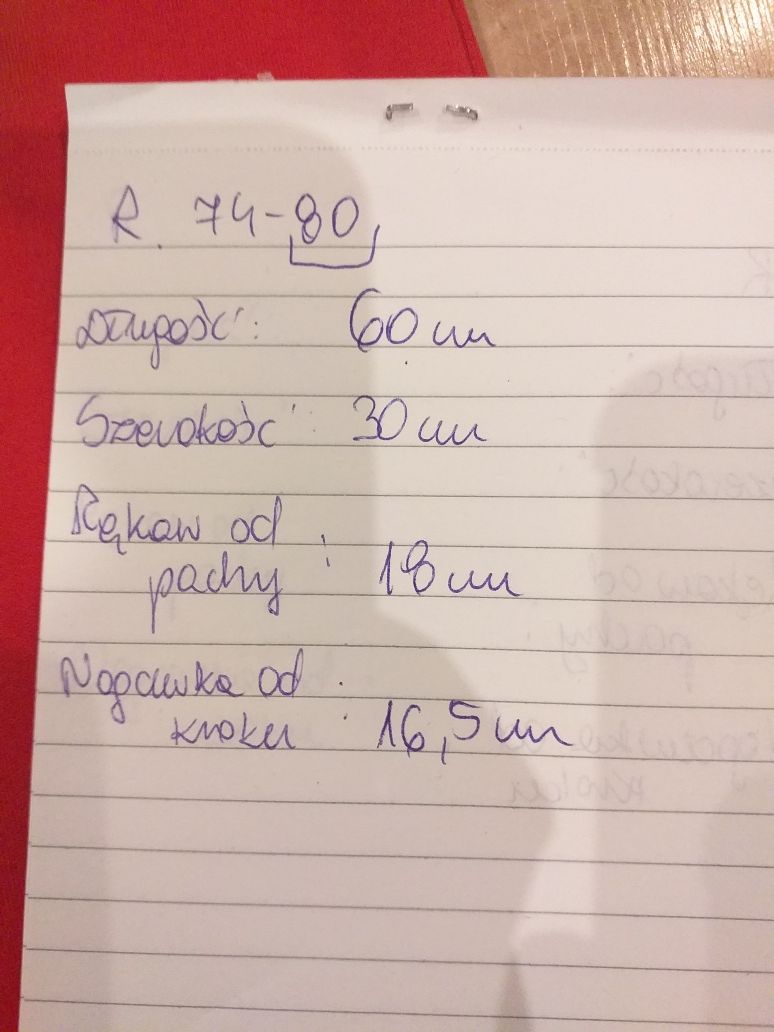 R. 74-80
Długość: 60 cm
Szerokość: 30 cm
Rękaw od
pachy : 18 cm
Nogawka od
kroku : 16,5 cm